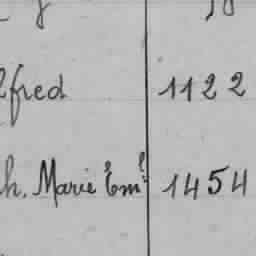 lfred 1122
h. Marie Em^le 1454